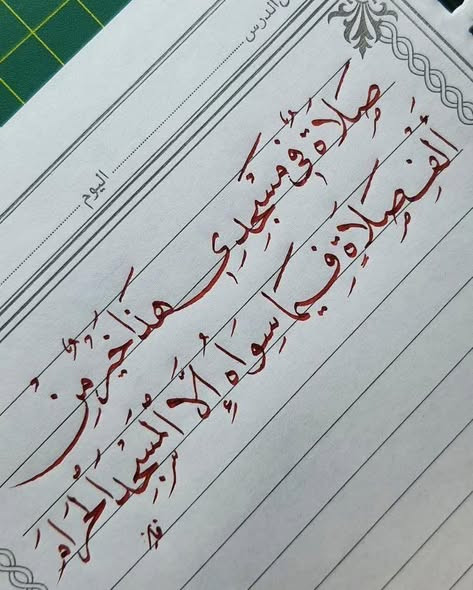 الدرس
اليوم
صَلَاةٌ فِي مَسْجِدِي هَذَا خَيْرٌ مِنْ
أَلْفِ صَلَاةٍ فِيمَا سِوَاهُ إِلَّا الْمَسْجِدَ الْحَرَامَ